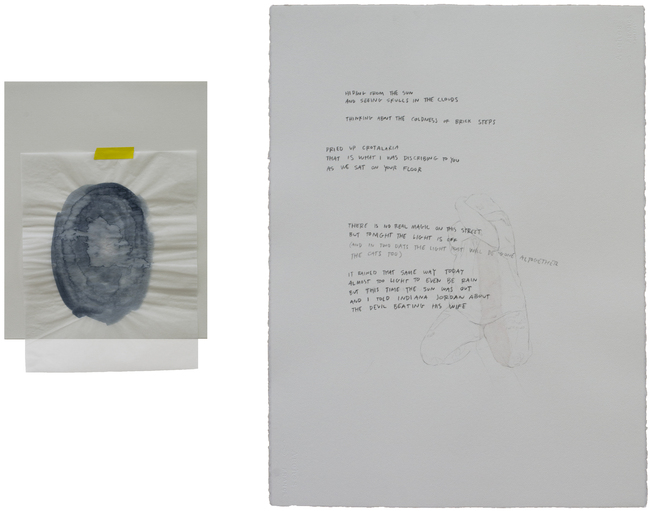 HIDING FROM THE SUN
AND SEEING SKULLS IN THE CLOUDS
THINKING ABOUT THE COLDNESS OF BRICK STEPS
DRIED UP CROTALARIA
THAT IS WHAT I WAS DISCRIBING TO YOU
AS WE SAT ON YOUR FLOOR
THERE IS NO REAL MAGIC ON THIS STREET
BUT TONIGHT THE LIGHT IS OFF
(AND IN TWO DAYS THE LIGHT THAT WILL BE GONE ALTOGETHER
THE CATS TOO)
IT RAINED THAT SAME WAY TODAY
ALMOST TOO LIGHT TO EVEN BE RAIN
BUT THIS TIME THE SUN WAS OUT
AND I TOLD INDIANA JORDAN ABOUT
THE DEVIL BEATING HIS WIFE